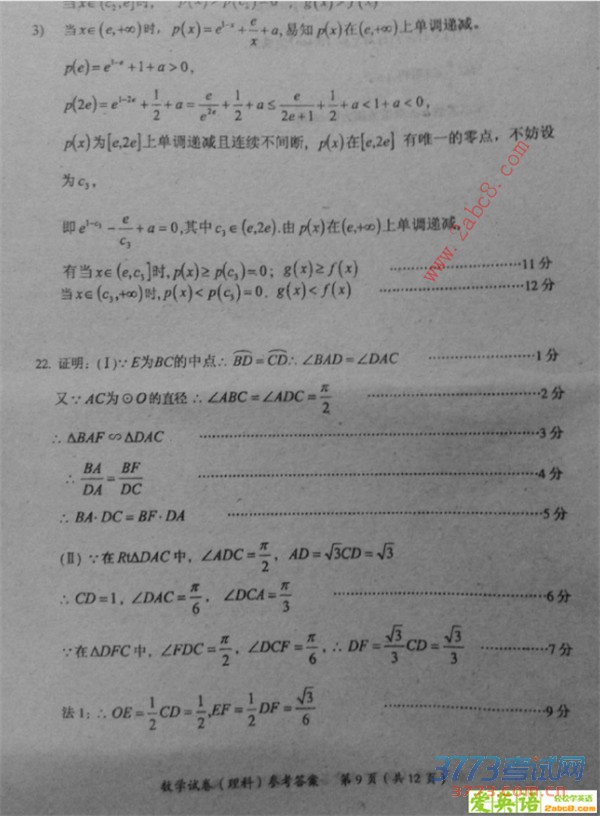 3) 当x∈(e,+∞)时, p(x)=e^{1-x}+\frac{e}{x}+a,易知p(x)在(e,+∞)上单调递减。
p(e)=e^{1-e}+1+a>0,
p(2e)=e^{1-2e}+\frac{1}{2}+a=\frac{e}{e^{2e}}+\frac{1}{2}+a≤\frac{e}{2e+1}+\frac{1}{2}+a<1+a<0,
p(x)为[e,2e]上单调递减且连续不间断, p(x)在[e,2e] 有唯一的零点, 不妨设
为c₃,
即e^{1-c₃}-\frac{e}{c₃}+a=0,其中c₃∈(e,2e).由p(x)在(e,+∞)上单调递减,
有当x∈(e,c₃]时,p(x)≥p(c₃)=0; g(x)≥f(x) ………………11分
当x∈(c₃,+∞)时,p(x)<p(c₃)=0. g(x)<f(x) ………………12分
22. 证明:(Ⅰ)∵E为BC的中点∴ \overset{\frown}{BD}=\overset{\frown}{CD}∴∠BAD=∠DAC ………………1分
又∵AC为⊙O的直径∴∠ABC=∠ADC=\frac{π}{2} ………………2分
∴ΔBAF∽ΔDAC ………………3分
∴\frac{BA}{DA}=\frac{BF}{DC} ………………4分
∴BA·DC=BF·DA ………………5分
(Ⅱ)∵在RtΔDAC中, ∠ADC=\frac{π}{2}, AD=√3CD=√3
∴CD=1, ∠DAC=\frac{π}{6}, ∠DCA=\frac{π}{3} ………………6分
∵在ΔDFC中, ∠FDC=\frac{π}{2}, ∠DCF=\frac{π}{6},∴DF=\frac{√3}{3}CD=\frac{√3}{3} ………………7分
法1:∴OE=\frac{1}{2}CD=\frac{1}{2},EF=\frac{1}{2}DF=\frac{√3}{6} ………………9分
数学试卷(理科)参考答案 第9页(共12页)
www.2abc8.com
3773考试网
3773.com.cn
爱英语 轻松学英语
2abc8.com